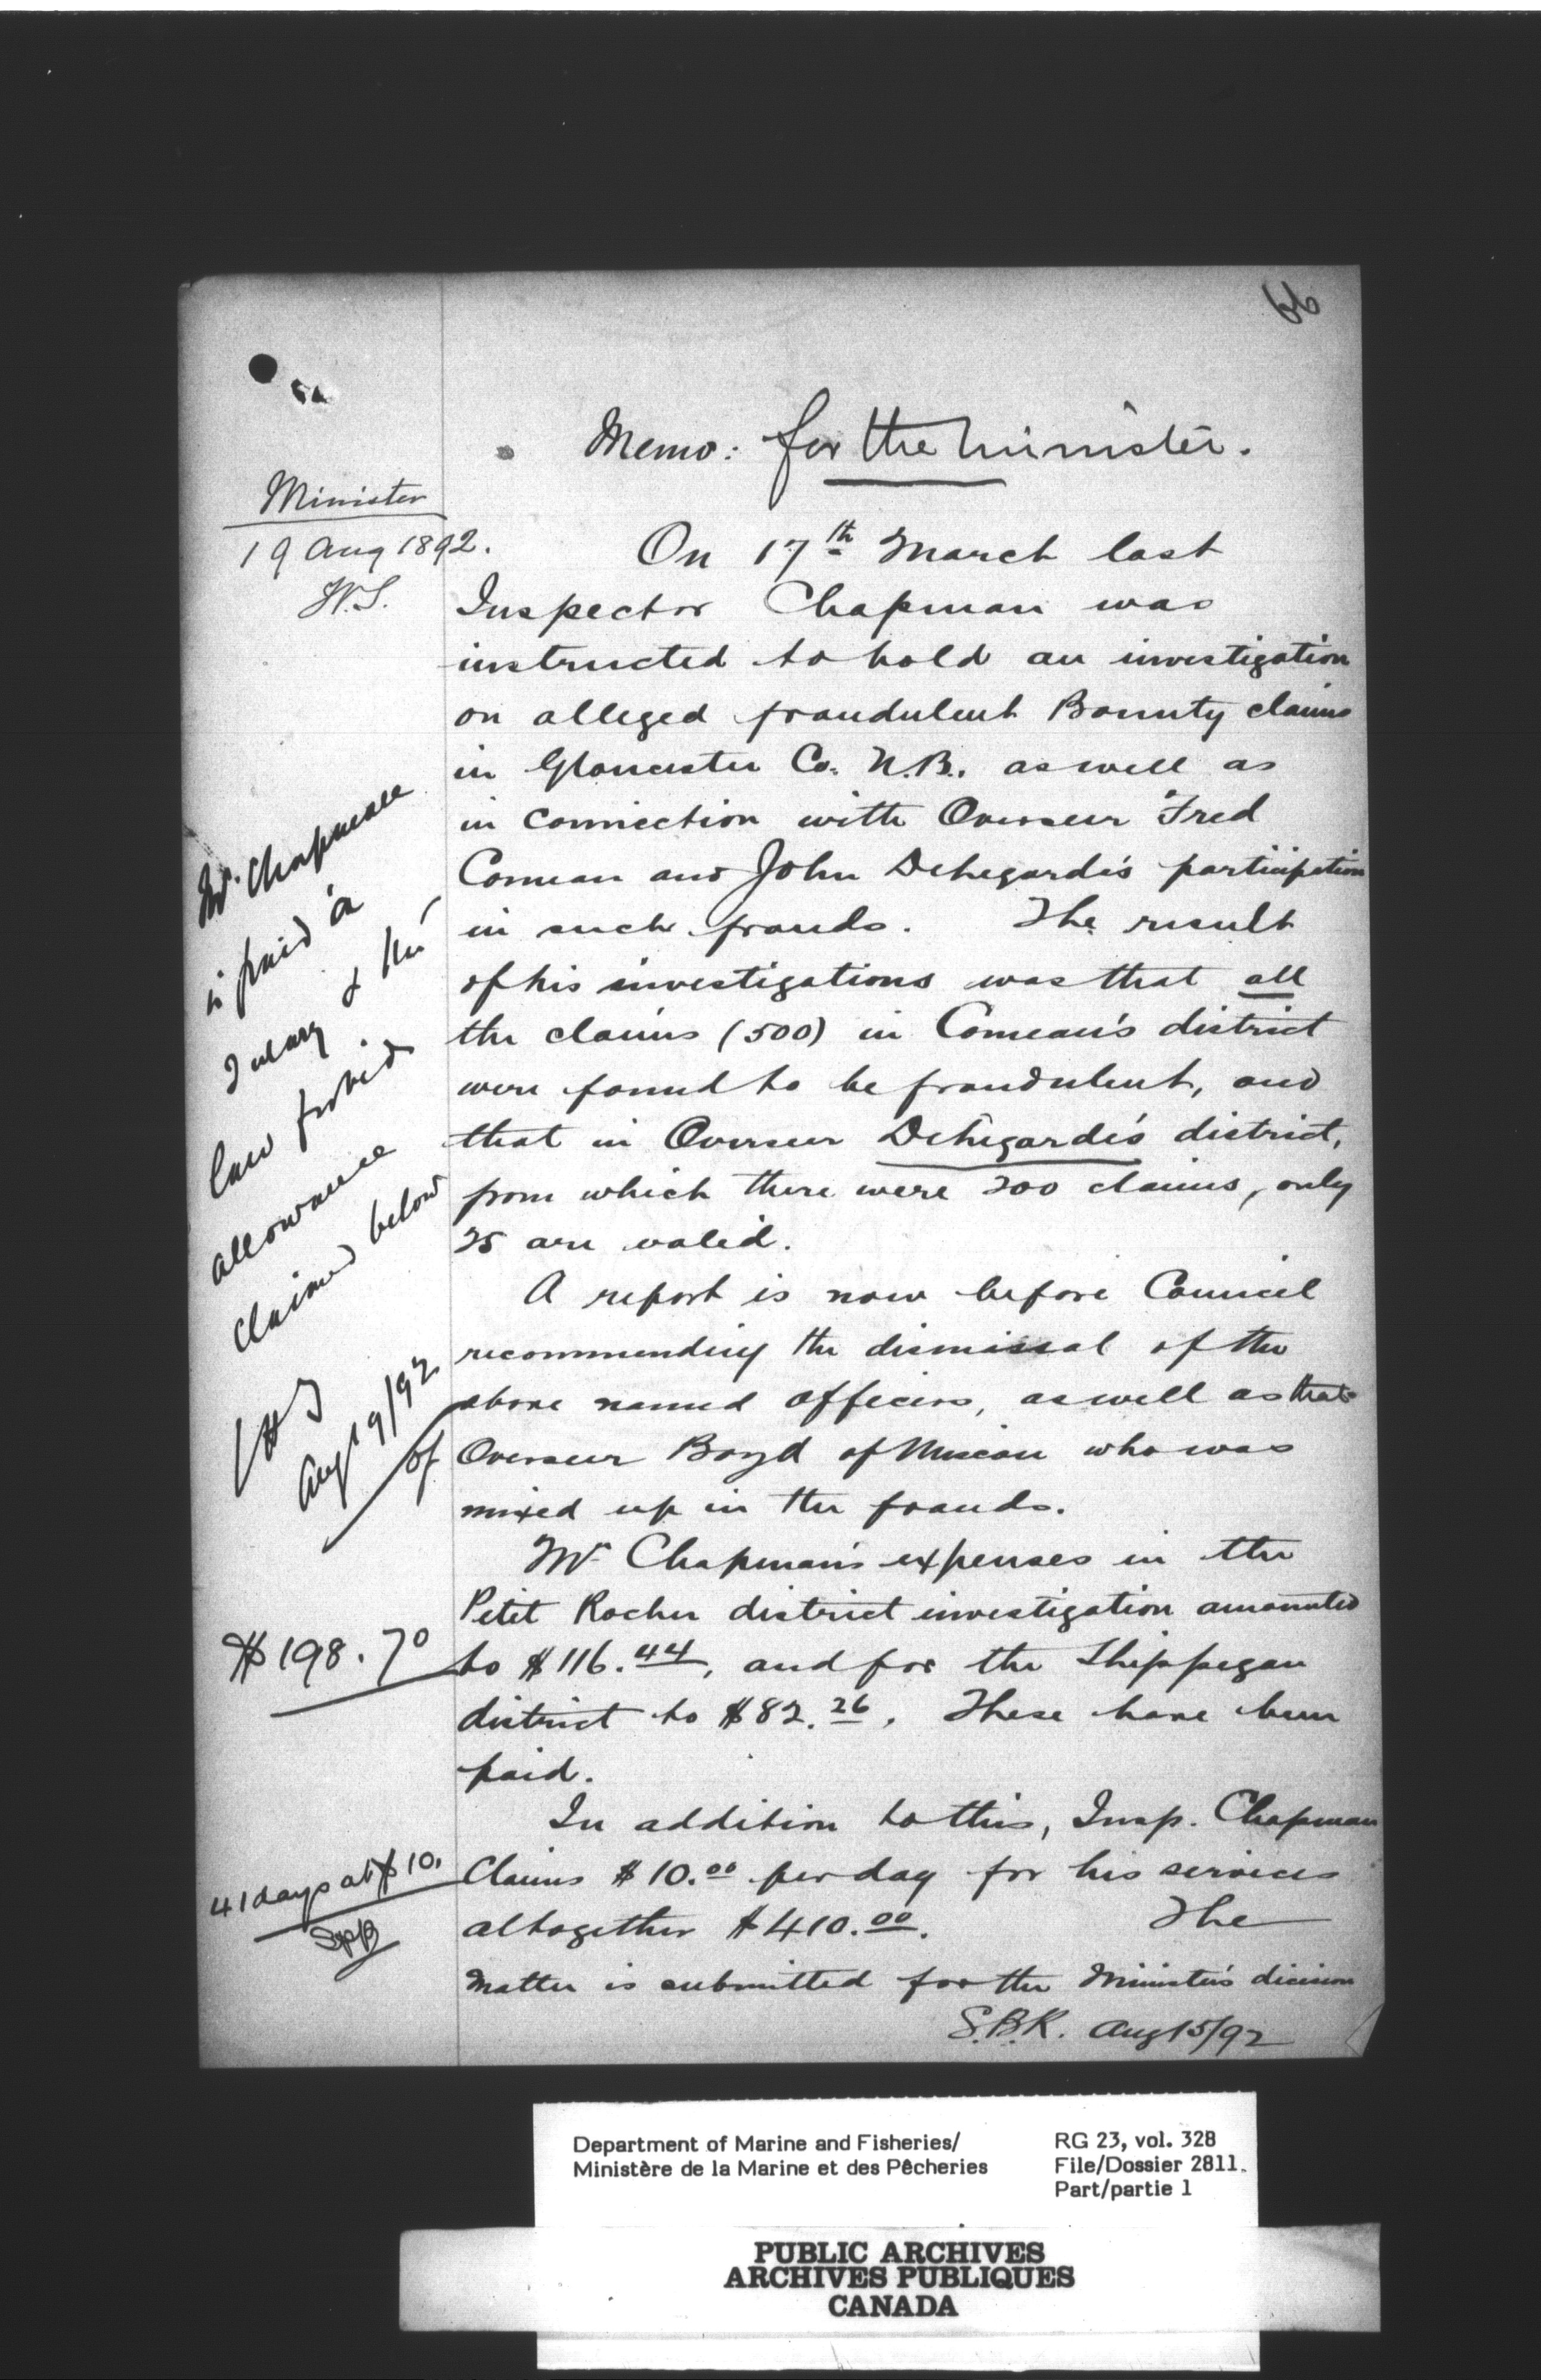 66
Memo: for the Minister.
Minister
19 Aug 1892.
On 17th March last
Inspector Chapman was
instructed to hold an investigation
on alleged fraudulent Bounty claims
in Gloucester Co. N.B. as well as
in connection with Overseer Fred
Comeau and John Dehegarde's participation
in such frauds. The result
of his investigations was that all
the claims (500) in Comeau's district
were found to be fraudulent, and
that in Overseer Dehegarde's district,
from which there were 200 claims, only
25 are valid.
A report is now before Council
recommending the dismissal of the
above named officers, as well as that
of Overseer Boyd of Miscou who was
mixed up in the frauds.
Mr Chapman's expenses in the
Petit Rocher district investigation amounted
to $116.44, and for the Shippegan
district to $82.26. These have been
paid.
In addition to this, Insp. Chapman
Claims $10.00 per day for his services
altogether $410.00. The
matter is submitted for the Minister's decision
S.B.K. Aug 15/92
Mr Chapman
is paid a
Salary & the
law forbids
allowance
claimed below
Aug 19/92
$198.70
41 days at $10.
Department of Marine and Fisheries/
Ministère de la Marine et des Pêcheries
RG 23, vol. 328
File/Dossier 2811.
Part/partie 1
PUBLIC ARCHIVES
ARCHIVES PUBLIQUES
CANADA